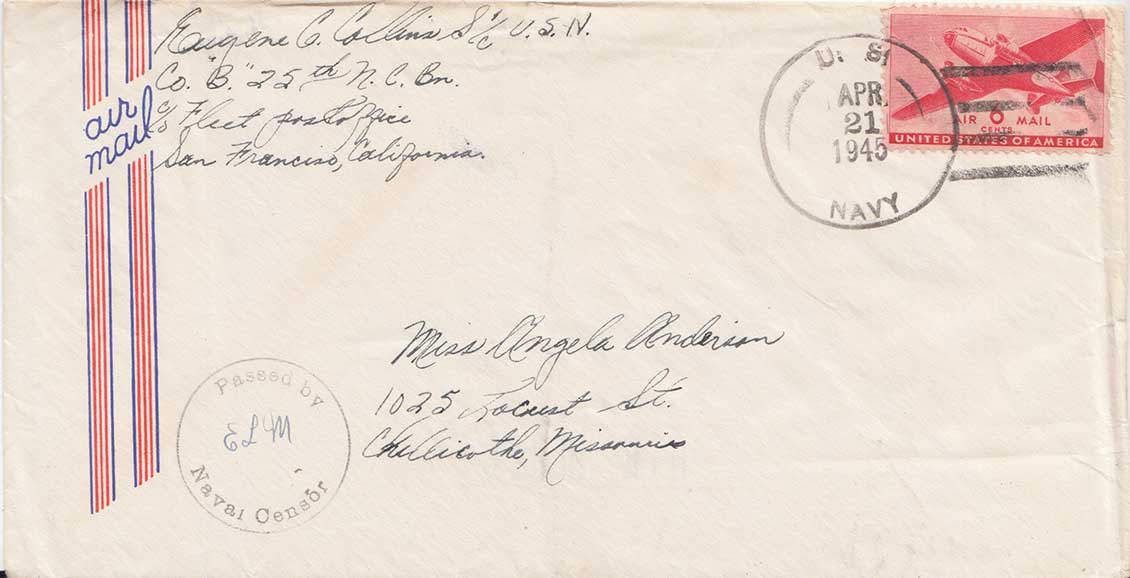 Eugene C. Collins S 1/c U.S.N.
Co. "B." 25th N.C. Bn.
c/o Fleet postoffice
San Franciso, California.
air
mail
U. S.
APR
21
1945
NAVY
AIR 6 MAIL
CENTS
UNITED STATES OF AMERICA
Miss Angela Anderson
1025 Locust St.
Chillicothe, Missouri
Passed by
ELM
Naval Censor